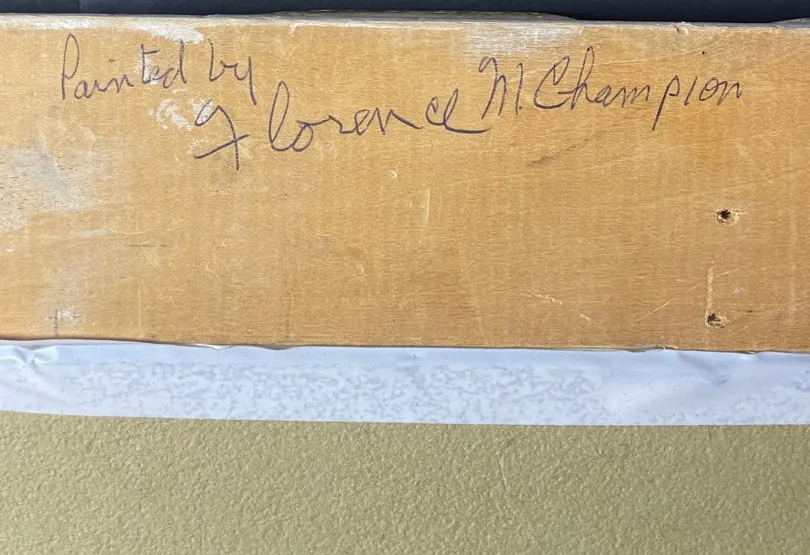 Painted by
Florence M. Champion